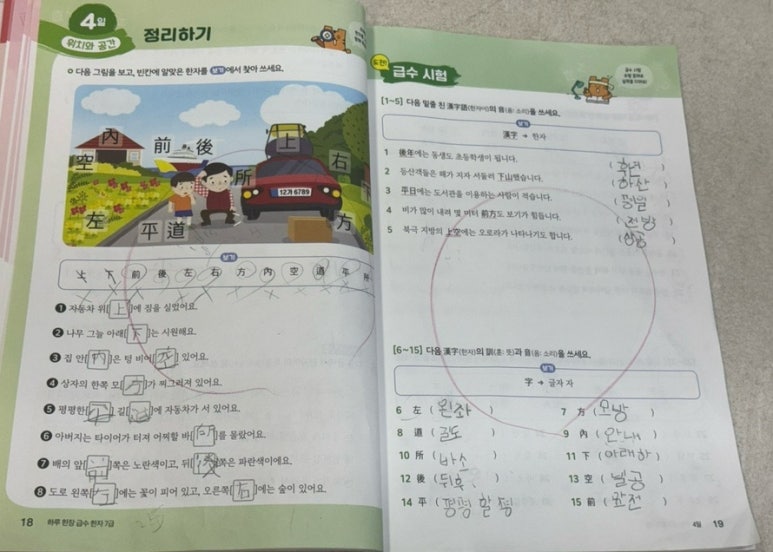 4일
위치와 공간
정리하기
다음 그림을 보고, 빈칸에 알맞은 한자를 보기에서 찾아 쓰세요.
內 前 後 上 右
空 所
12가 6789
左 平 道 方
보기
上 下 前 後 左 右 方 內 空 道 平 所
1 자동차 위[上]에 짐을 실었어요.
2 나무 그늘 아래[下]는 시원해요.
3 집 안[內]은 텅 비어[空] 있어요.
4 상자의 한쪽 모[方]가 찌그러져 있어요.
5 평평한[平] 길[道]에 자동차가 서 있어요.
6 아버지는 타이어가 터져 어찌할 바[所]를 몰랐어요.
7 배의 앞[前]쪽은 노란색이고, 뒤[後]쪽은 파란색이에요.
8 도로 왼쪽[左]에는 꽃이 피어 있고, 오른쪽[右]에는 숲이 있어요.
18 하루 한장 급수 한자 7급
도전!
급수 시험
[1~5] 다음 밑줄 친 漢字語(한자어)의 音(음: 소리)을 쓰세요.
보기
漢字 → 한자
1 後年에는 동생도 초등학생이 됩니다.
2 등산객들은 해가 지자 서둘러 下山했습니다. (하산)
3 平日에는 도서관을 이용하는 사람이 적습니다. (평일)
4 비가 많이 내려 몇 미터 前方도 보기가 힘듭니다. (전방)
5 북극 지방의 上空에는 오로라가 나타나기도 합니다. (상공)
[6~15] 다음 漢字(한자)의 訓(훈: 뜻)과 音(음: 소리)을 쓰세요.
보기
字 → 글자 자
6 左 (왼좌) 7 方 (모방)
8 道 (길도) 9 內 (안내)
10 所 (바소) 11 下 (아래하)
12 後 (뒤후) 13 空 (빌공)
14 平 (평평할 평) 15 前 (앞전)
4일 19